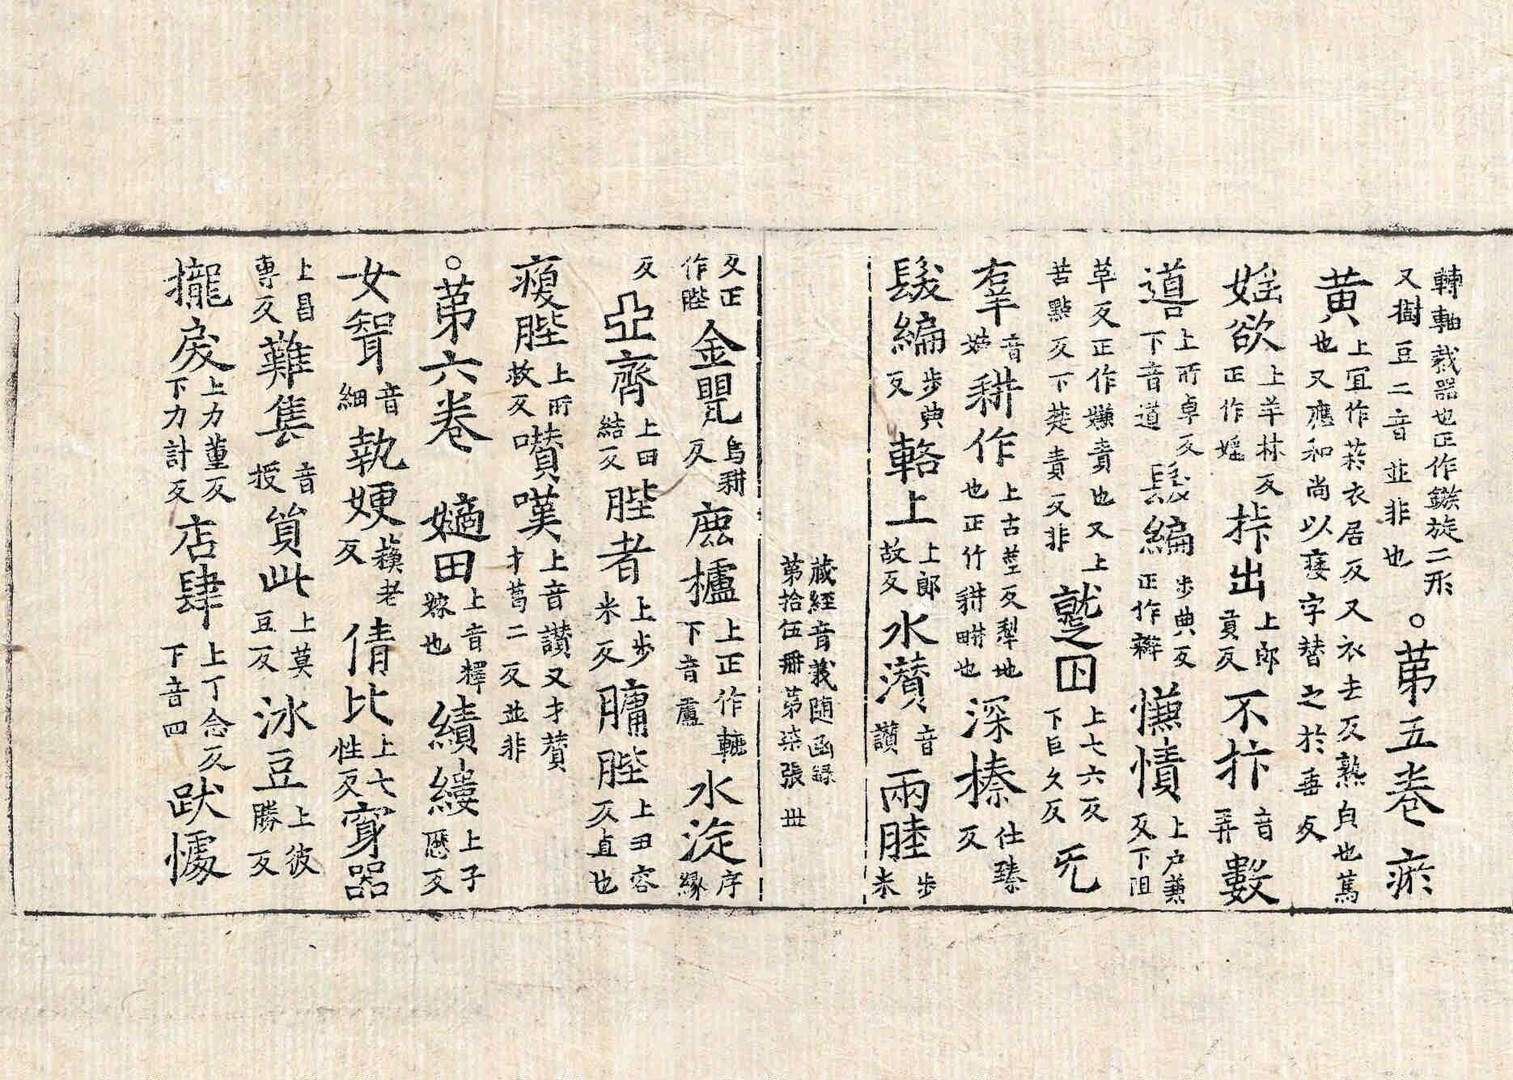 轉軸裁器也正作鏇旋二形
又樹豆二音並非也
。第五卷
瘀
黄
上宜作菸衣居反又衣去反熟自也蔫
也又應和尚以萎字替之於垂反
婬欲
上羊林反
正作婬
桙出
上郎
貢反
不抃
音
弄
數
道
上所卓反
下音道
髲編
步典反
正作辮
慊憒
上户兼
反下阻
革反正作嫌責也又上
苦點反下楚責反非
蹔囚
上七六反
下巨久反
旡
羍
音
耕作
上古莖反犁地
也正作耕畊也
深榛
仕臻
反
髲編
步典
反
輅上
上郎
故反
水濽
音
讚
兩䏶
步
米
藏經音義随函録
第拾伍冊第柒張 丗
反正
作䏶
金甖
烏耕
反
鹿櫨
上正作轆
下音盧
水漩
序
縁
反
亞齊
上田
結反
䏶者
上步
米反
𦟛䏶
上丑容
反直也
瘦䏶
上所
救反
囋嘆
上音讃又才賛
才葛二反並非
。第六卷
嫡田
上音釋
嫁也
績縷
上子
歷反
女聟
音
細
執㛐
蘓老
反
倩比
上七
性反
寶器
上昌
專反
難隻
音
授
貿此
上莫
豆反
泳豆
上彼
勝反
攏戾
上力董反
下力計反
店肆
上丁念反
下音四
䟦懅